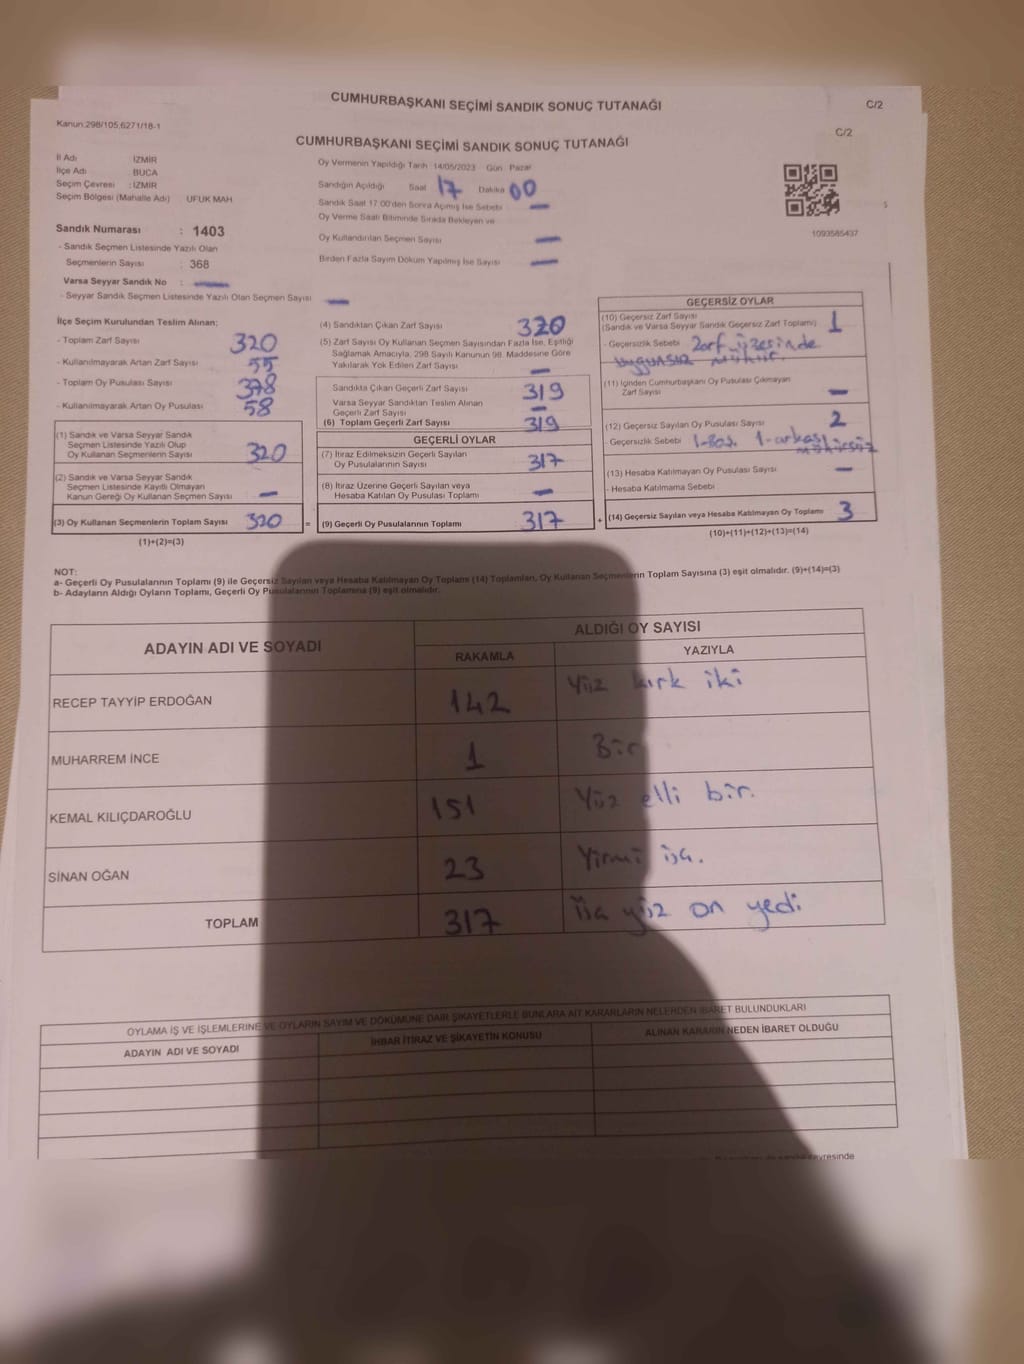 CUMHURBAŞKANI SEÇİMİ SANDIK SONUÇ TUTANAĞI
C/2
Kanun:298/105;6271/18-1
C/2
CUMHURBAŞKANI SEÇİMİ SANDIK SONUÇ TUTANAĞI
İl Adı İZMİR
İlçe Adı BUCA
Seçim Çevresi : İZMİR
Seçim Bölgesi (Mahalle Adı) UFUK MAH.
Sandık Numarası : 1403
- Sandık Seçmen Listesinde Yazılı Olan
Seçmenlerin Sayısı : 368
Varsa Seyyar Sandık No : —
- Seyyar Sandık Seçmen Listesinde Yazılı Olan Seçmen Sayısı —
Oy Vermenin Yapıldığı Tarih 14/05/2023 Gün Pazar
Sandığın Açıldığı Saat 17 Dakika 00
Sandık Saat 17.00'den Sonra Açmış İse Sebebi —
Oy Verme Saati Bitiminde Sırada Bekleyen ve
Oy Kullandırılan Seçmen Sayısı —
Birden Fazla Sayım Döküm Yapılmış İse Sayısı —
1093585437
İlçe Seçim Kurulundan Teslim Alınan:
- Toplam Zarf Sayısı 320
- Kullanılmayarak Artan Zarf Sayısı 55
- Toplam Oy Pusulası Sayısı 378
- Kullanılmayarak Artan Oy Pusulası 58
(1) Sandık ve Varsa Seyyar Sandık
Seçmen Listesinde Yazılı Olup
Oy Kullanan Seçmenlerin Sayısı 320
(2) Sandık ve Varsa Seyyar Sandık
Seçmen Listesinde Kayıtlı Olmayan
Kanun Gereği Oy Kullanan Seçmen Sayısı —
(3) Oy Kullanan Seçmenlerin Toplam Sayısı 320 =
(1)+(2)=(3)
(4) Sandıktan Çıkan Zarf Sayısı 320
(5) Zarf Sayısı Oy Kullanan Seçmen Sayısından Fazla İse, Eşitliği
Sağlamak Amacıyla, 298 Sayılı Kanunun 98. Maddesine Göre
Yakılarak Yok Edilen Zarf Sayısı —
Sandıkta Çıkan Geçerli Zarf Sayısı 319
Varsa Seyyar Sandıktan Teslim Alınan
Geçerli Zarf Sayısı —
(6) Toplam Geçerli Zarf Sayısı 319
GEÇERLİ OYLAR
(7) İtiraz Edilmeksizin Geçerli Sayılan
Oy Pusulalarının Sayısı 317
(8) İtiraz Üzerine Geçerli Sayılan veya
Hesaba Katılan Oy Pusulası Toplamı —
(9) Geçerli Oy Pusulalarının Toplamı 317 +
GEÇERSİZ OYLAR
(10) Geçersiz Zarf Sayısı
(Sandık ve Varsa Seyyar Sandık Geçersiz Zarf Toplamı) 1
- Geçersizlik Sebebi Zarf üzesinde
uygunsuz mühür.
(11) İçinden Cumhurbaşkanı Oy Pusulası Çıkmayan
Zarf Sayısı —
(12) Geçersiz Sayılan Oy Pusulası Sayısı 2
- Geçersizlik Sebebi 1-Boş. 1-arkası
mühürsüz
(13) Hesaba Katılmayan Oy Pusulası Sayısı —
- Hesaba Katılmama Sebebi
(14) Geçersiz Sayılan veya Hesaba Katılmayan Oy Toplamı 3
(10)+(11)+(12)+(13)=(14)
NOT:
a- Geçerli Oy Pusulalarının Toplamı (9) ile Geçersiz Sayılan veya Hesaba Katılmayan Oy Toplamı (14) Toplamları, Oy Kullanan Seçmenlerin Toplam Sayısına (3) eşit olmalıdır. (9)+(14)=(3)
b- Adayların Aldığı Oyların Toplamı, Geçerli Oy Pusulalarının Toplamına (9) eşit olmalıdır.
ADAYIN ADI VE SOYADI
ALDIĞI OY SAYISI
RAKAMLA YAZIYLA
RECEP TAYYİP ERDOĞAN 142 Yüz kırk iki
MUHARREM İNCE 1 Bir
KEMAL KILIÇDAROĞLU 151 Yüz elli bir.
SİNAN OĞAN 23 Yirmi üç.
TOPLAM 317 üç yüz on yedi
OYLAMA İŞ VE İŞLEMLERİNE VE OYLARIN SAYIM VE DÖKÜMÜNE DAİR ŞİKAYETLERLE BUNLARA AİT KARARLARIN NELERDEN İBARET BULUNDUKLARI
ADAYIN ADI VE SOYADI İHBAR İTİRAZ VE ŞİKAYETİN KONUSU ALINAN KARARIN NEDEN İBARET OLDUĞU